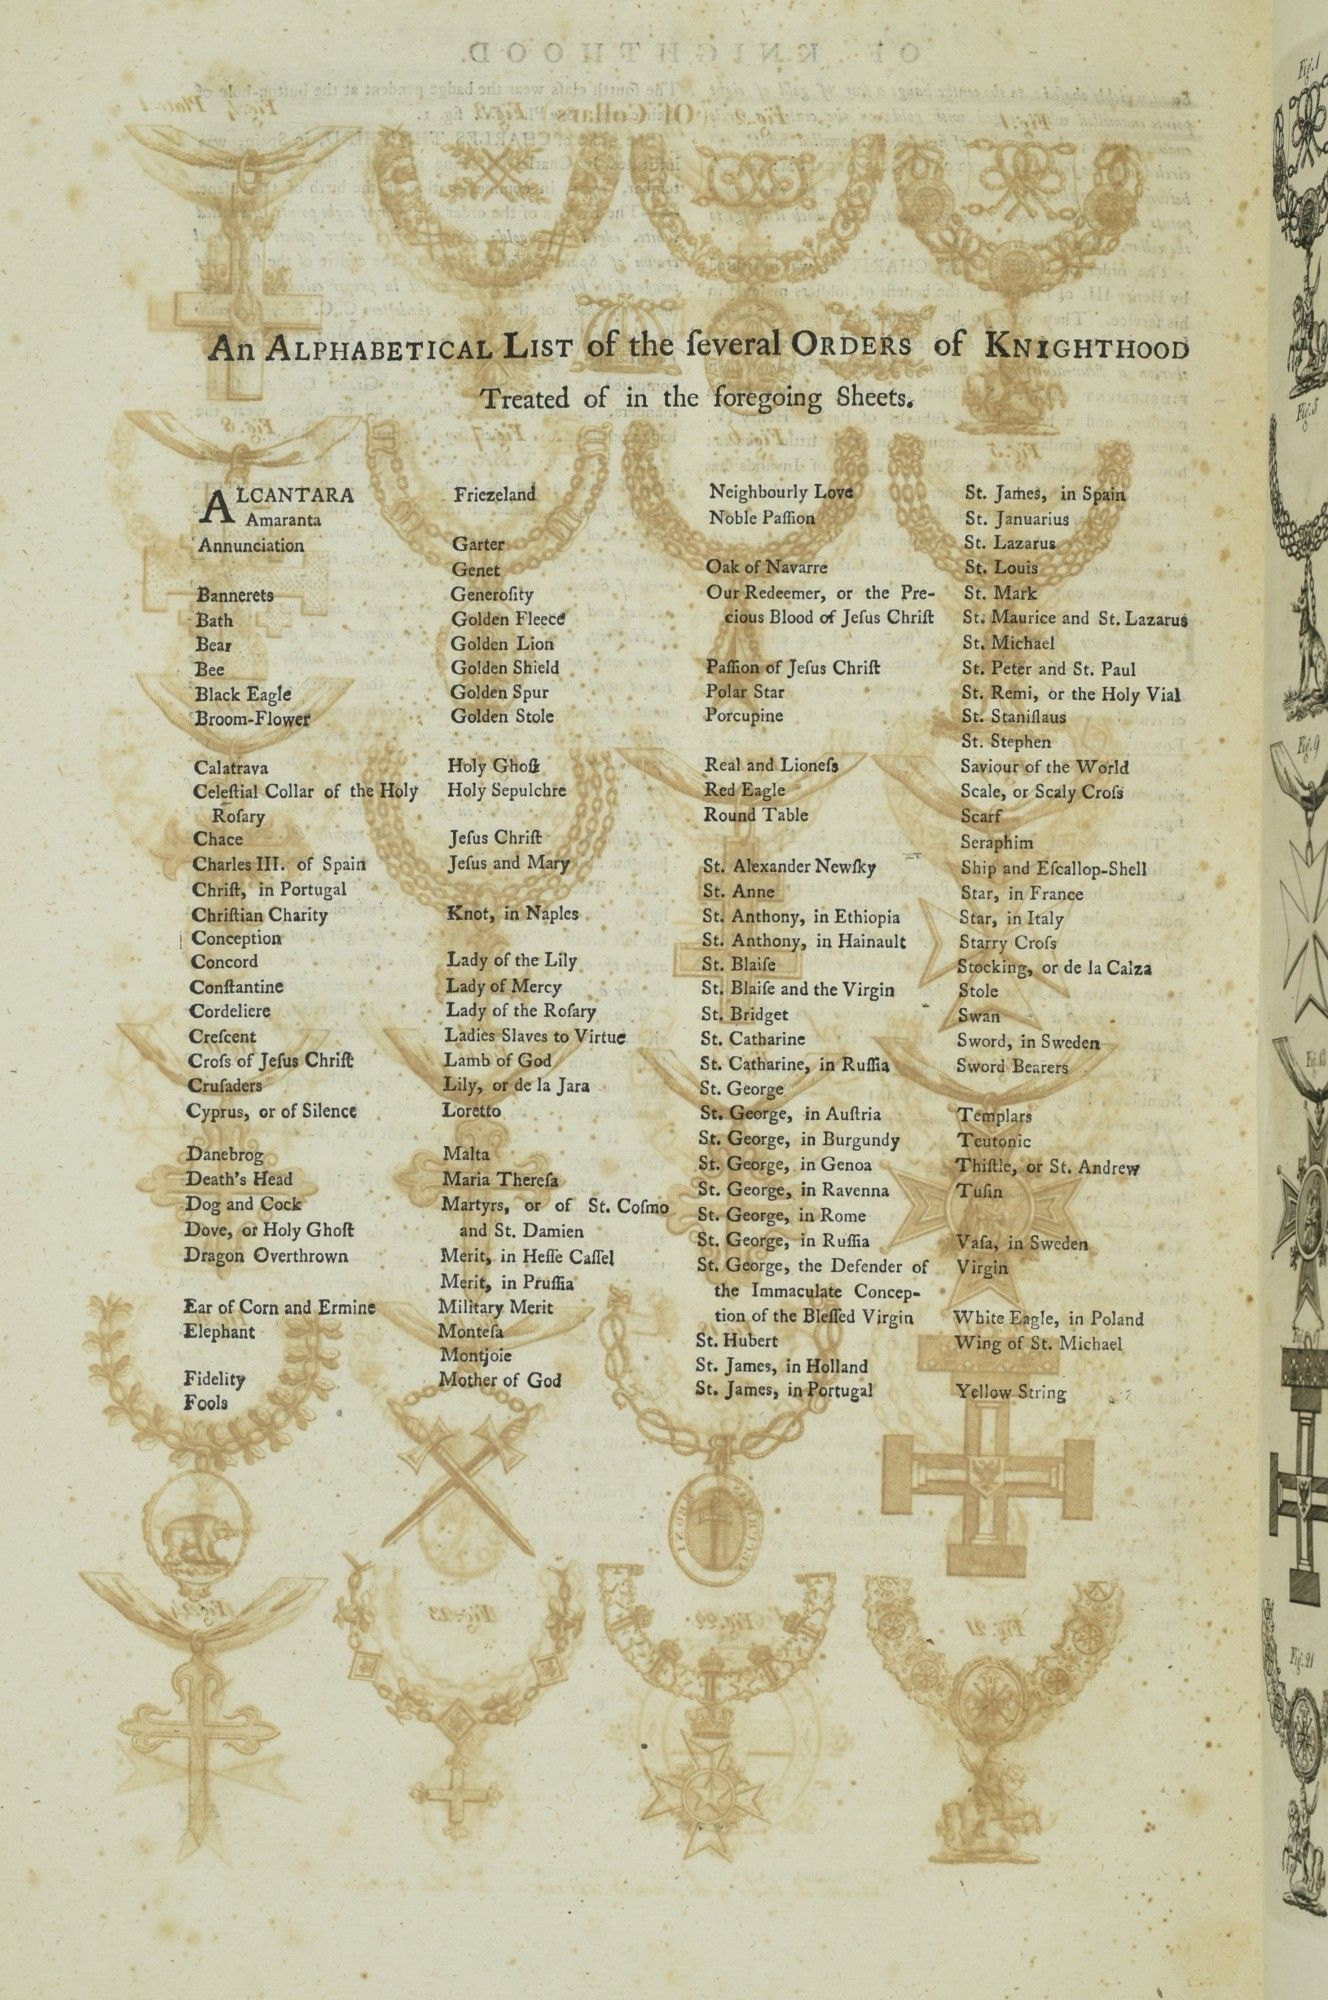 An ALPHABETICAL LIST of the ſeveral ORDERS of KNIGHTHOOD
Treated of in the foregoing Sheets.
ALCANTARA
Amaranta
Annunciation
Bannerets
Bath
Bear
Bee
Black Eagle
Broom-Flower
Calatrava
Celeſtial Collar of the Holy
Roſary
Chace
Charles III. of Spain
Chriſt, in Portugal
Chriſtian Charity
Conception
Concord
Conſtantine
Cordeliere
Creſcent
Croſs of Jeſus Chriſt
Cruſaders
Cyprus, or of Silence
Danebrog
Death's Head
Dog and Cock
Dove, or Holy Ghoſt
Dragon Overthrown
Ear of Corn and Ermine
Elephant
Fidelity
Fools
Friezeland
Garter
Genet
Generoſity
Golden Fleece
Golden Lion
Golden Shield
Golden Spur
Golden Stole
Holy Ghoſt
Holy Sepulchre
Jeſus Chriſt
Jeſus and Mary
Knot, in Naples
Lady of the Lily
Lady of Mercy
Lady of the Roſary
Ladies Slaves to Virtue
Lamb of God
Lily, or de la Jara
Loretto
Malta
Maria Thereſa
Martyrs, or of St. Coſmo
and St. Damien
Merit, in Heſſe Caſſel
Merit, in Pruſſia
Military Merit
Monteſa
Montjoie
Mother of God
Neighbourly Love
Noble Paſſion
Oak of Navarre
Our Redeemer, or the Pre-
cious Blood of Jeſus Chriſt
Paſſion of Jeſus Chriſt
Polar Star
Porcupine
Real and Lioneſs
Red Eagle
Round Table
St. Alexander Newſky
St. Anne
St. Anthony, in Ethiopia
St. Anthony, in Hainault
St. Blaiſe
St. Blaiſe and the Virgin
St. Bridget
St. Catharine
St. Catharine, in Ruſſia
St. George
St. George, in Auſtria
St. George, in Burgundy
St. George, in Genoa
St. George, in Ravenna
St. George, in Rome
St. George, in Ruſſia
St. George, the Defender of
the Immaculate Concep-
tion of the Bleſſed Virgin
St. Hubert
St. James, in Holland
St. James, in Portugal
St. James, in Spain
St. Januarius
St. Lazarus
St. Louis
St. Mark
St. Maurice and St. Lazarus
St. Michael
St. Peter and St. Paul
St. Remi, or the Holy Vial
St. Staniſlaus
St. Stephen
Saviour of the World
Scale, or Scaly Croſs
Scarf
Seraphim
Ship and Eſcallop-Shell
Star, in France
Star, in Italy
Starry Croſs
Stocking, or de la Calza
Stole
Swan
Sword, in Sweden
Sword Bearers
Templars
Teutonic
Thiſtle, or St. Andrew
Tuſin
Vaſa, in Sweden
Virgin
White Eagle, in Poland
Wing of St. Michael
Yellow String
Fig. 1
Fig. 5
Fig. 9
Fig. 21